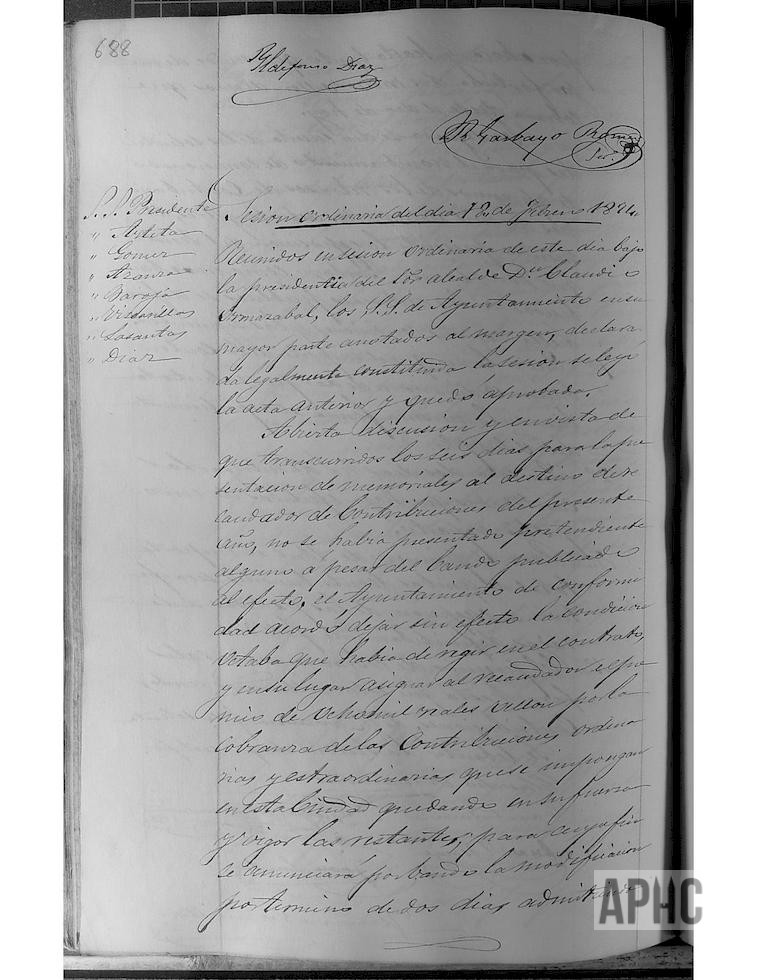 688
Ildefonso Diaz
R. Garbayo
Sesion ordinaria del dia 12 de Febrero 1874.
S.S. Presidente
" Arteta
" Gomez
" Azanza
" Baroja
" Lasantas
" Diaz
Reunidos en sesion ordinaria de este dia bajo
la presidencia del Sor alcalde Dn Claudio
Ormazabal, los S.S. de Ayuntamiento en su
mayor parte anotados al margen, declara
da legalmente constituida la sesion se leyó
la acta anterior y quedó aprobada.
Abierta discusion y en vista de
que transcurridos los seis dias para la pre
sentacion de memoriales al destino de re
caudador de Contribuciones del presente
año, no se habia presentado pretendiente
alguno á pesar del bando publicado
al efecto, el Ayuntamiento de conformi
dad acordó dejar sin efecto la condicion
octaba que habia de regir en el contrato,
y en su lugar asignar al recaudador el pre
mio de ocho mil reales vellon por la
cobranza de las Contribuciones ordina
rias y estraordinarias que se impongan
en esta Ciudad quedando en su fuerza
y vigor las restantes; para cuyo fin
se anunciará por bando la modificacion
por termino de dos dias admitiendo
APHC